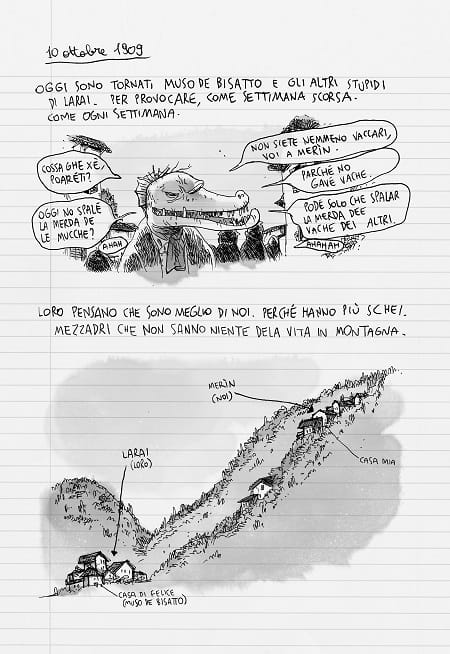 10 ottobre 1909
OGGI SONO TORNATI MUSO DE BISATTO E GLI ALTRI STUPIDI
DI LARAI. PER PROVOCARE, COME SETTIMANA SCORSA.
COME OGNI SETTIMANA.
COSSA GHE XÉ,
POARÈTI?
OGGI NO SPALE
LA MERDA DE
LE MUCCHE?
AHAH
NON SIETE NEMMENO VACCARI,
VOI A MERÌN.
PARCHÉ NO
GAVÉ VACHE.
PODÉ SOLO CHE SPALAR
LA MERDA DEE
VACHE DEI ALTRI.
AHAHAH
LORO PENSANO CHE SONO MEGLIO DI NOI. PERCHÉ HANNO PIÙ SCHEI.
MEZZADRI CHE NON SANNO NIENTE DELA VITA IN MONTAGNA.
MERÌN
(NOI)
CASA MIA
LARAI
(LORO)
CASA DI FELICE
(MUSO DE BISATTO)